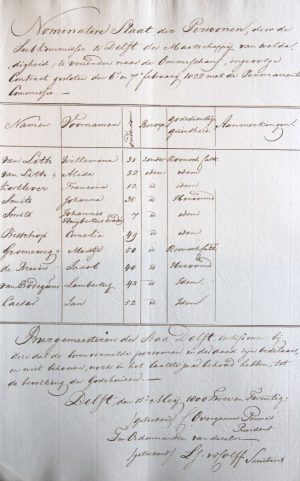 Nominative Staat der Personen, door de
Subkommissie te Delft der Maatschappij van welda
digheid, te verzenden naar de Ommerschans, ingevolge
Contract gesloten den 6e en 7e february 1822 met de Permanente
Commissie.
Namen Voornamen Ouderdom Beroep Godsdienstige gezindheid Aanmerkingen
van Leth Willemina 31 zonder Roomsch Cath.
van Leth Alida 32 idem idem
Francina 12 id idem
Smits Johanna 36 id Hervormd
Smits Johannes 7 id idem
Bisschop Cornelia 49 id idem
Groeneweg Maatje 50 id Roomsch Cath.
de Bruin Jacob 40 id Hervormd
Lambertus 42 id Idem
Caesar Jan 52 id Idem
Burgemeesteren der Stad Delft, certificeren bij
dezen dat de bovenvermelde personen inderdaad zijn bedelaars,
en niet behooren, noch in het laatste jaar behoord hebben, tot
de bevolking der Godshuizen.
Delft, den 15e Meij 1800 Twee en Twintig
(geteekend) Overgaauw Pennis
President
Ter Ordonnantie van dezelve
(geteekend) Wolff Secretaris